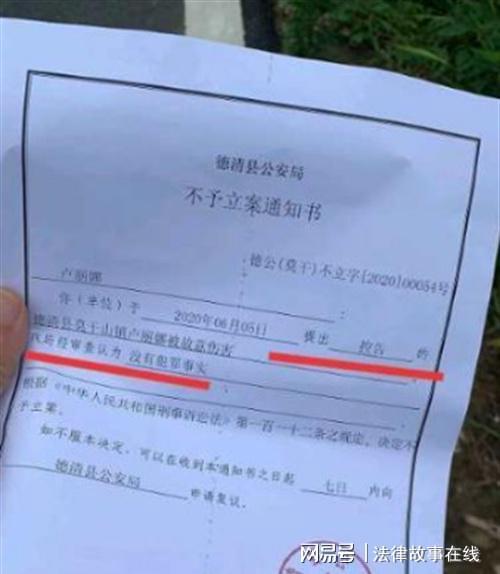 德清县公安局
不予立案通知书
德公(莫干)不立字[2020]00054号
卢丽娜
你(单位)于 2020年06月05日 提出 控告 的
德清县莫干山镇卢丽娜被故意伤害
我局经审查认为 没有犯罪事实
根据《中华人民共和国刑事诉讼法》第一百一十二条之规定，决定不
予立案。
如不服本决定，可以在收到本通知书之日起 七日 内向
德清县公安局 申请复议。
网易号 | 法律故事在线